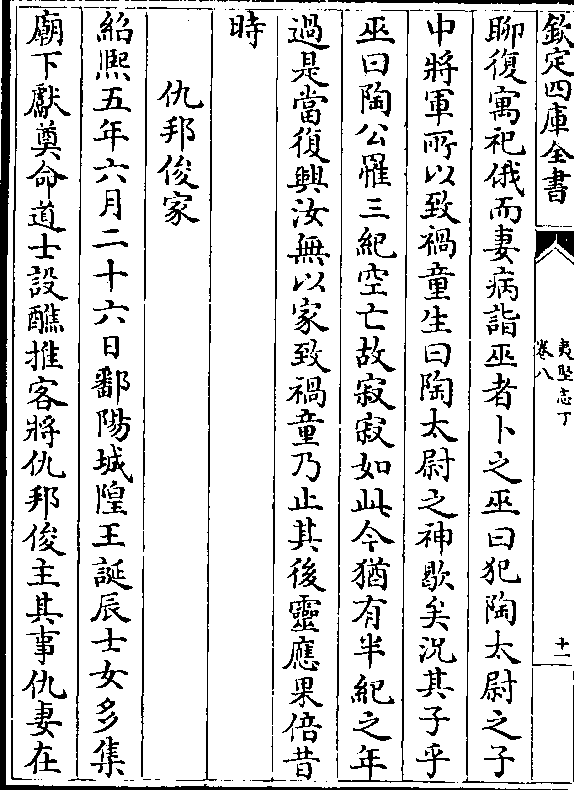 欽定四庫全書
夷堅志丁
卷八
十一
聊復寓祀俄而妻病詣巫者卜之巫曰犯陶太尉之子
中將軍所以致禍童生曰陶太尉之神歇矣況其子乎
巫曰陶公罹三紀空亡故寂寂如此今猶有半紀之年
過是當復興汝無以家致禍童乃止其後靈應果倍昔
時
仇邦俊家
紹熙五年六月二十六日鄱陽城隍王誕辰士女多集
廟下獻奠命道士設醮推客將仇邦俊主其事仇妻在